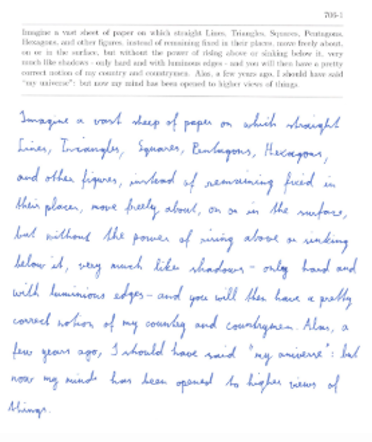 708-1
Imagine a vast sheet of paper on which straight Lines, Triangles, Squares, Pentagons,
Hexagons, and other figures, instead of remaining fixed in their places, move freely about,
on or in the surface, but without the power of rising above or sinking below it, very
much like shadows - only hard and with luminous edges - and you will then have a pretty
correct notion of my country and countrymen. Alas, a few years ago, I should have said
"my universe": but now my mind has been opened to higher views of things.
Imagine a vast sheep of paper on which straight
Lines, Triangles, Squares, Pentagons, Hexagons,
and other figures, instead of remaining fixed in
their places, move freely about, on or in the surface,
but without the power of rising above or sinking
below it, very much like shadows - only hard and
with luminious edges - and you will then have a pretty
correct notion of my country and countrymen. Alas, a
few years ago, I should have said "my universe": but
now my minds has been opened to higher views of
things.